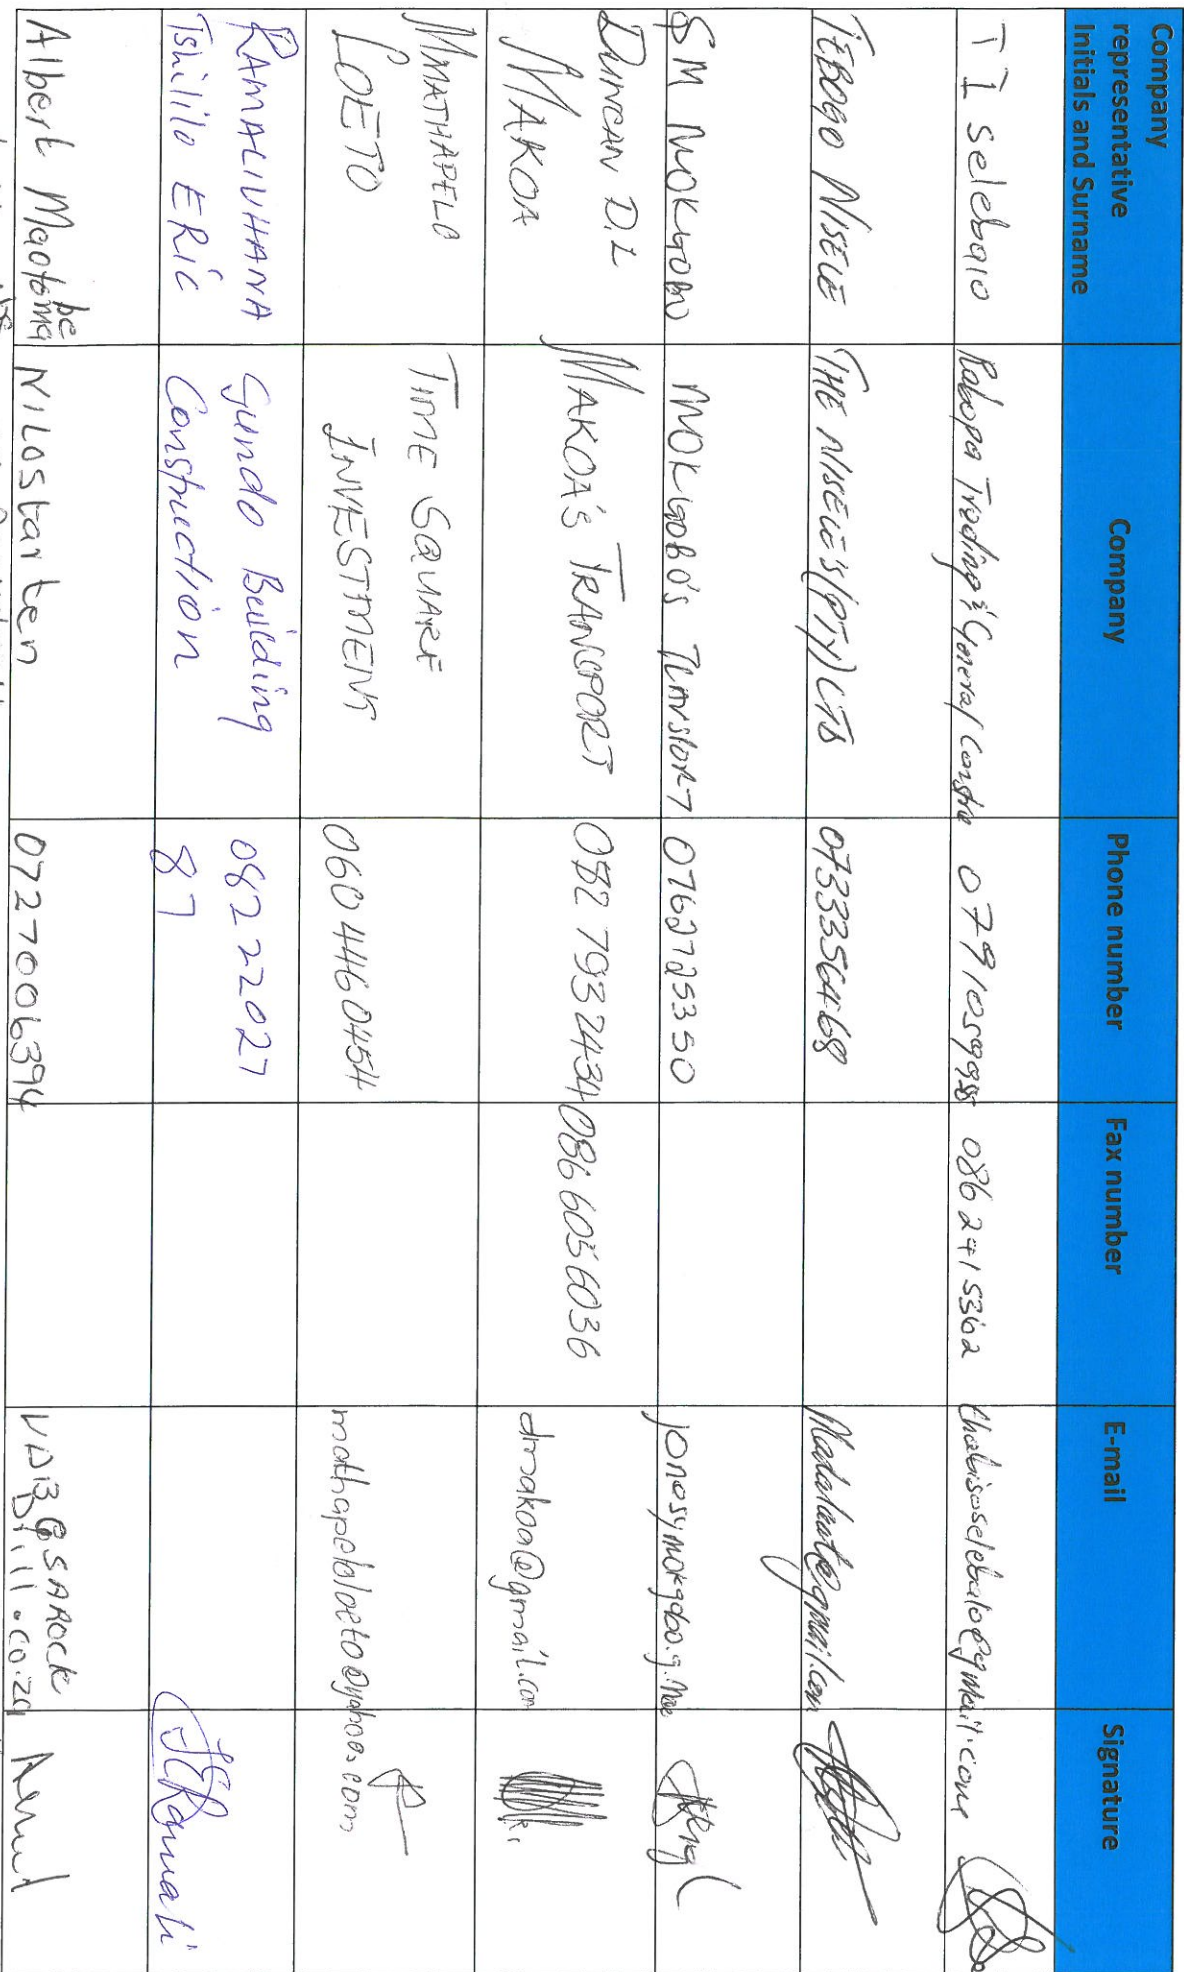 Company
representative
Initials and Surname
Company
Phone number
Fax number
E-mail
Signature
T I Selebalo
Rabopa Trading & General Constru
0791059988
086 2415362
thabisoselebalo@gmail.com
TEBOGO
THE (PTY) LTD
0733356468
SM MOKGOBO
MOKGOBO'S
0762725350
DUNCAN D.L
MAKOA
MAKOA'S TRANSPORT
082 793 2434
086 605 6036
dmakoa@gmail.com
MMATHAPELO
LOETO
TIME SQUARE
INVESTMENT
060 446 0454
mathapeloloeto@yahoo.com
RAMALIVHANA
Tshililo ERIC
Gundo Building
Construction
082 22027
87
Albert
Nilostarten
0727006394